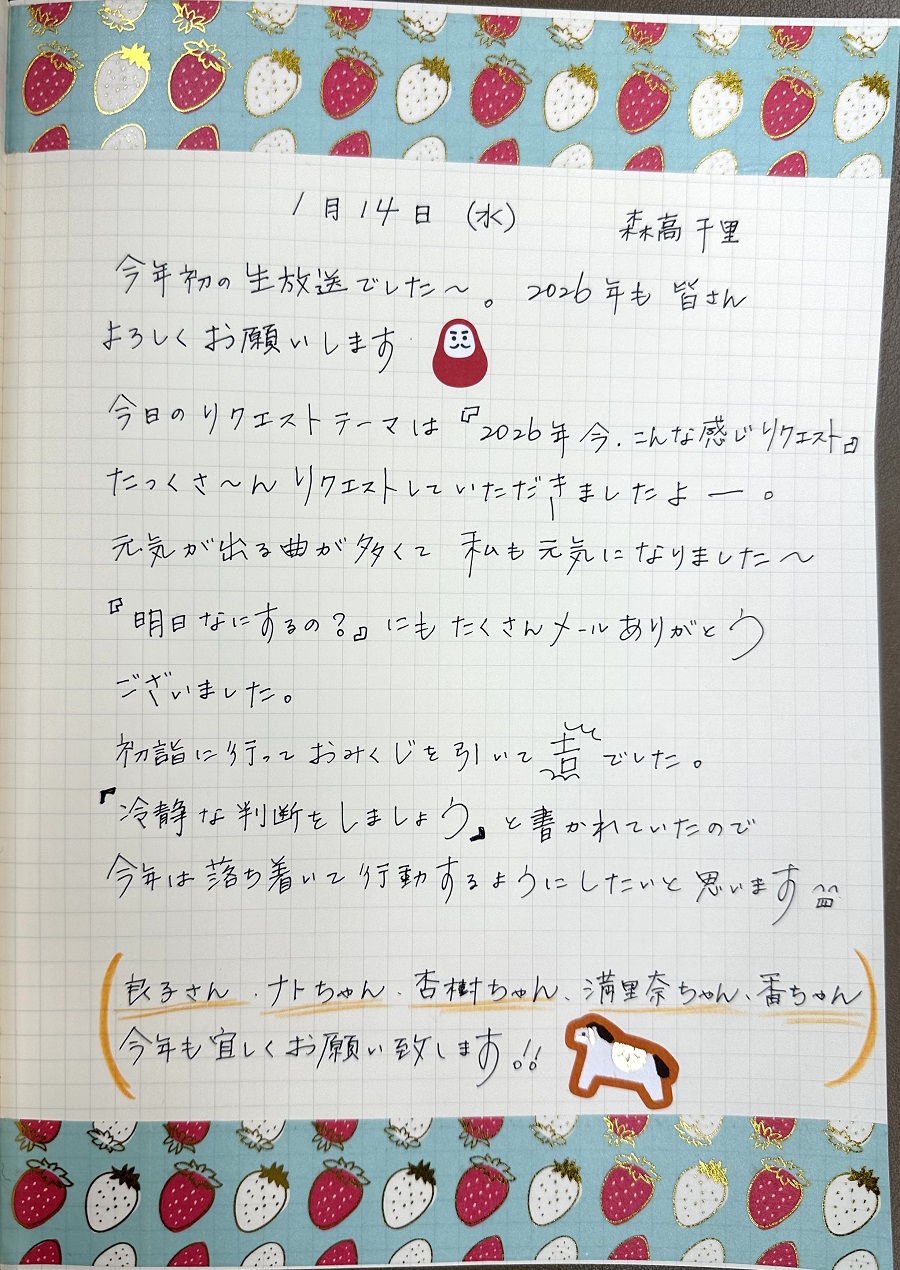 1月14日 (水) 森高千里
今年初の生放送でした〜。2026年も皆さん
よろしくお願いします
今日のリクエストテーマは『2026年今、こんな感じリクエスト』
たっくさ〜んリクエストしていただきましたよー。
元気が出る曲が多くて 私も元気になりました〜
『明日なにするの?』にもたくさんメールありがとう
ございました。
初詣に行っておみくじを引いて吉でした。
『冷静な判断をしましょう』と書かれていたので
今年は落ち着いて行動するようにしたいと思います
(良子さん、ナトちゃん、杏樹ちゃん、満里奈ちゃん、番ちゃん
今年も宜しくお願い致します!!)